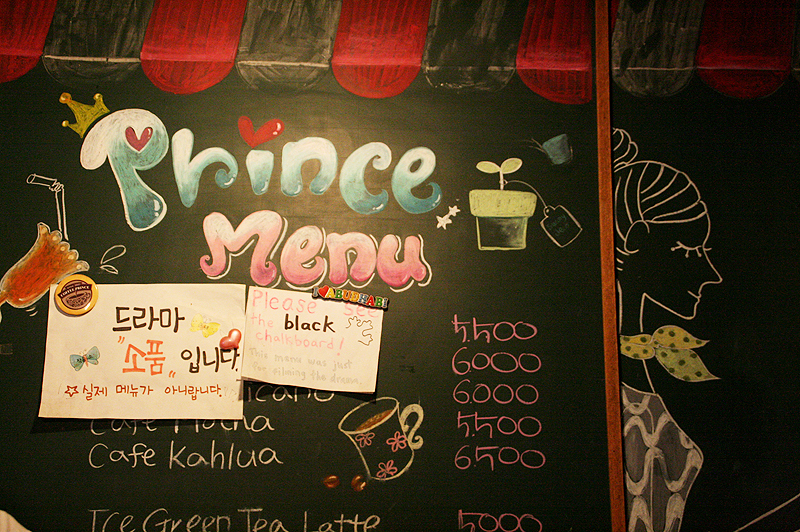 Prince
Menu
드라마
"소품" 입니다.
☆실제 메뉴가 아니랍니다.
I ♥ ABUDHABI
Please see
the black
chalkboard!
This menu was just
for filming the drama.
5,500
6000
6000
Cafe Mocha 5,500
Cafe Kahlua 6,500
Ice Green Tea Latte 5000